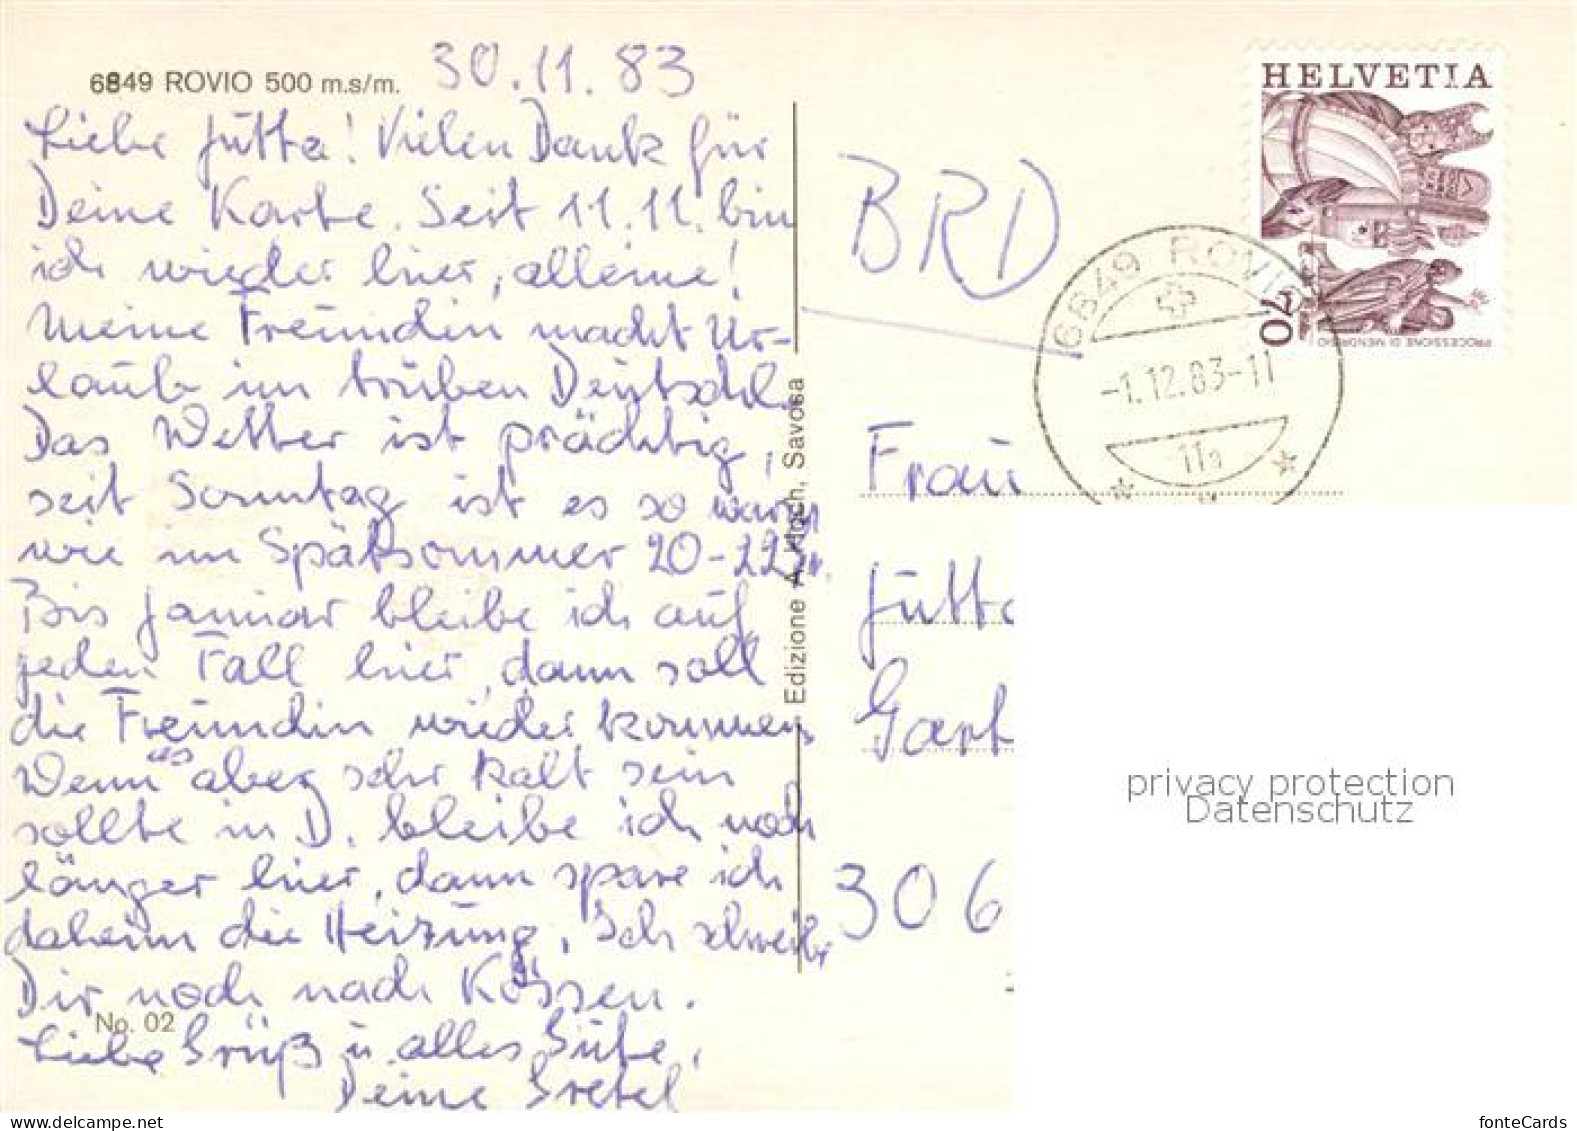 6849 ROVIO 500 m.s/m.
30.11.83
Liebe Jutta! Vielen Dank für
Deine Karte. Seit 11.11. bin
ich wieder hier, alleine!
Meine Freundin macht Ur-
laub im trüben Deutschl.
Das Wetter ist prächtig,
seit Sonntag ist es so warm
wie im Spätsommer 20-22
Bis Januar bleibe ich auf
jeden Fall hier, dann soll
die Freundin wieder kommen
Wenn es aber sehr kalt sein
sollte in D. bleibe ich noch
länger hier, dann spare ich
daheim die Heizung. Ich schreibe
Dir noch nach Kössen.
No. 02
Liebe Grüß u. alles Gute,
Deine Gretel
Edizione A. Hoch, Savosa
BRD
HELVETIA
70
PROCESSIONE DI MENDRISIO
6849 ROVIO
-1.12.83-11
11a
Frau
Jutta
Gart
306
privacy protection
Datenschutz
www.delcampe.net
fonteCards